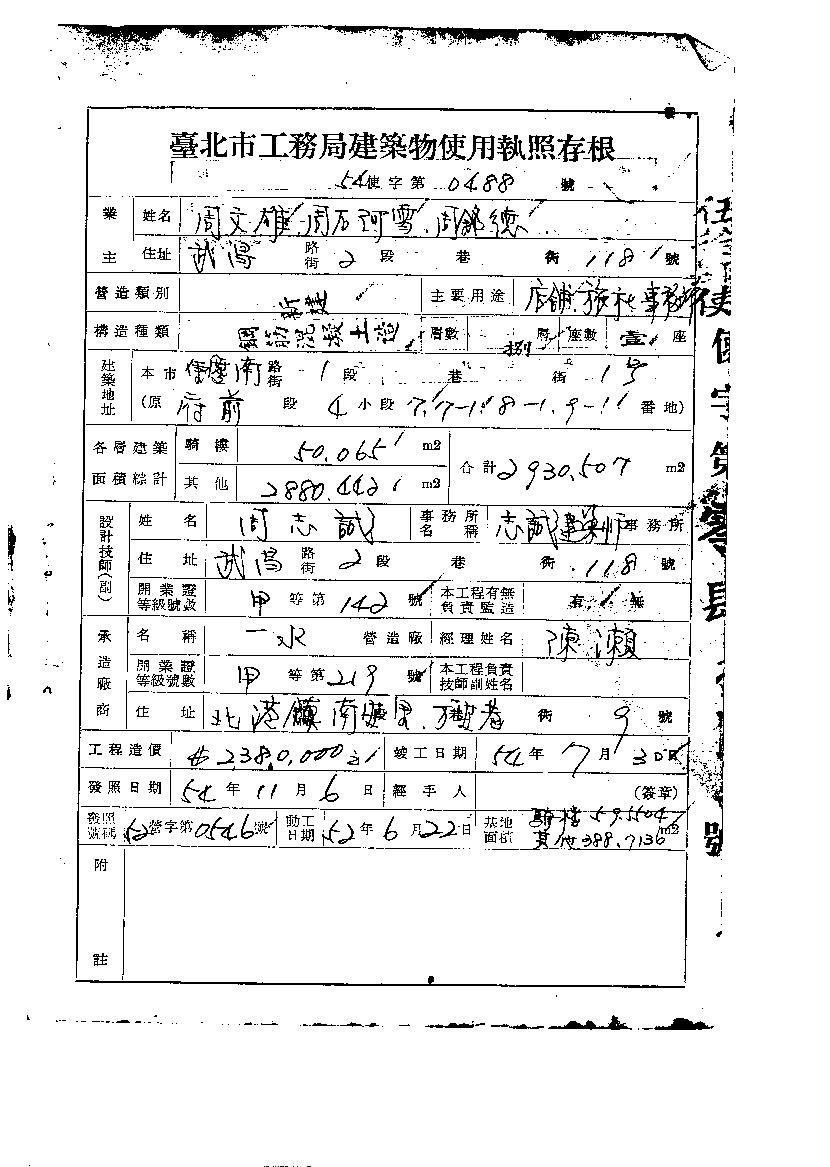 臺北市工務局建築物使用執照存根
54使字第 0488 號
業主 姓名 周文雄 周石阿雪 周錦德
住址 武昌 路街 2 段 巷 街 118 號
營造類別 新建 主要用途 店舖 旅社 事務所
構造種類 鋼筋混凝土造 層數 捌 層 座數 壹 座
建築地址 本市 重慶南 路街 1 段 巷 街 1 号
(原 府前 段 4 小段 7.7-1.8-1.9-1 番地)
各層建築面積綜計 騎樓 50.065 m2 合計 2930.507 m2
其他 2880.442 m2
設計技師(副) 姓名 周志誠 事務所名稱 志誠建築师事務所
住址 武昌 路街 2 段 巷 街 118 號
開業證等級號數 甲 等第 142 號 本工程有無負責監造 有 無
承造廠商 名稱 一水 營造廠 經理姓名 陳瀨
開業證等級號數 甲 等第 219 號 本工程負責技師副姓名
住址 北港鎮南 街 9 號
工程造價 2,380,000 竣工日期 54 年 7 月 30 日
發照日期 54 年 11 月 6 日 經手人 (簽章)
發照號碼 52營字第0546號 動工日期 52 年 6 月 22 日 基地面積 騎樓 59.5504 其他 388.7136 m2
附註
使字第
號